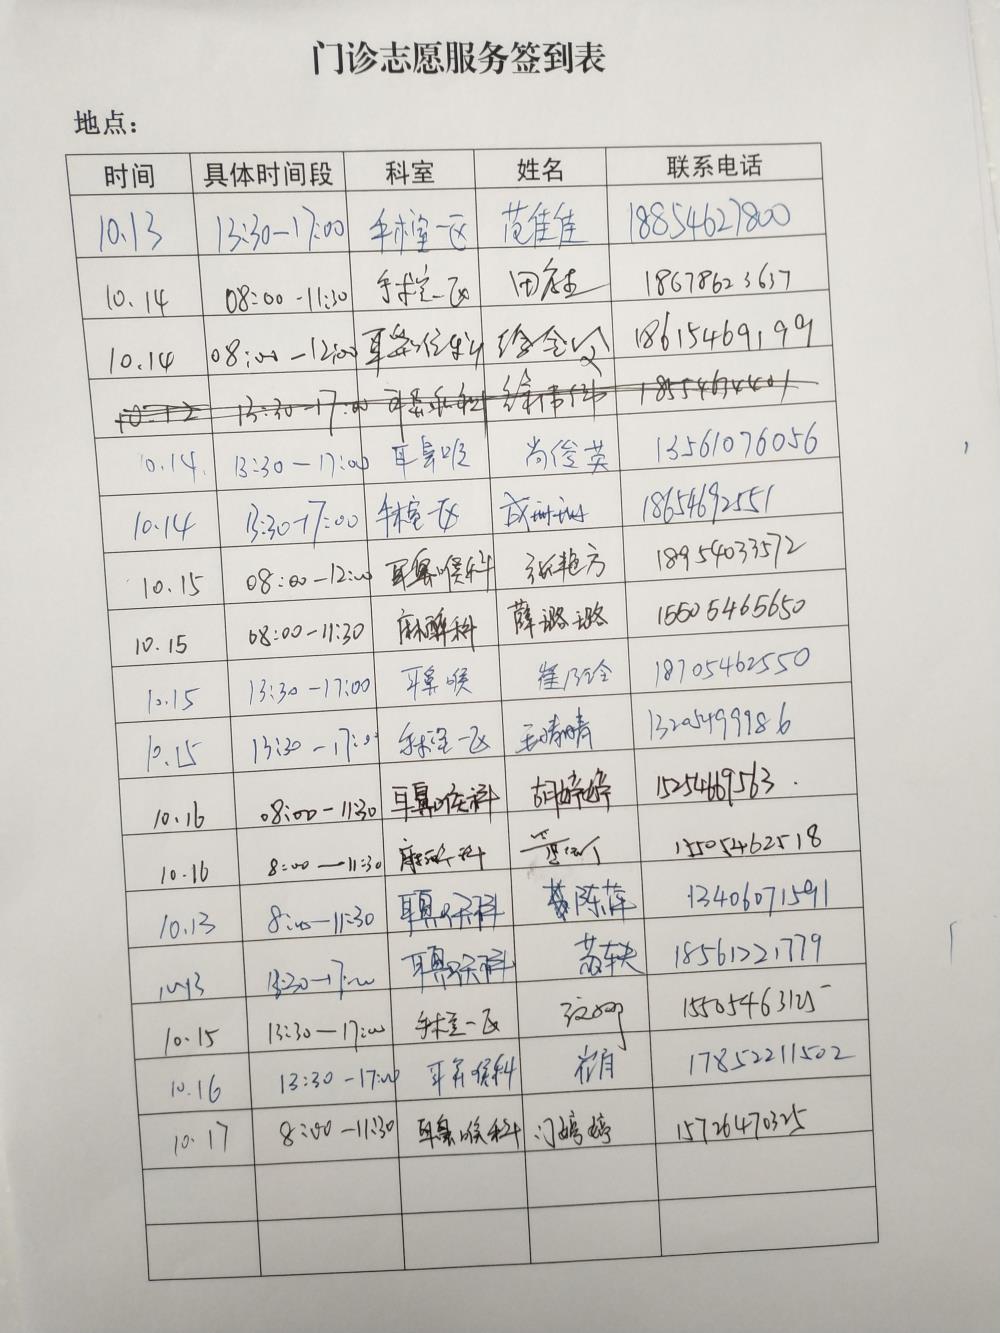 门诊志愿服务签到表
地点:
时间 具体时间段 科室 姓名 联系电话
10.13 13:30-17:00 手术室一区 范佳佳 18854627800
10.14 08:00-11:30 手术室一区 18678623637
10.14 08:00-12:00 耳鼻喉科 徐金 18615469199
13:30-17:00
10.14. 13:30-17:00 耳鼻喉 尚俊英 13561076056
10.14 13:30-17:00 手术室一区 18654692551
10.15 08:00-12:00 耳鼻喉科 张艳方 18954033572
10.15 08:00-11:30 麻醉科 薛璐璐 15505465650
10.15 13:30-17:00 耳鼻喉 崔乃铃 18705462550
10.15 13:30-17:00 手术室一区 王晴晴 13205499986
10.16 08:00-11:30 耳鼻喉科 胡婷婷 15254669563.
10.16 8:00-11:30 麻醉科 15505462518
10.13 8:00-11:30 耳鼻喉科 陈萍 13406071591
10.13 13:30-17:00 耳鼻喉科 苏轶 18561221779
10.15 13:30-17:00 手术室一区 15505463125
10.16 13:30-17:00 耳鼻喉科 崔月 17852211502
10.17 8:00-11:30 耳鼻喉科 门婷婷 15726470325